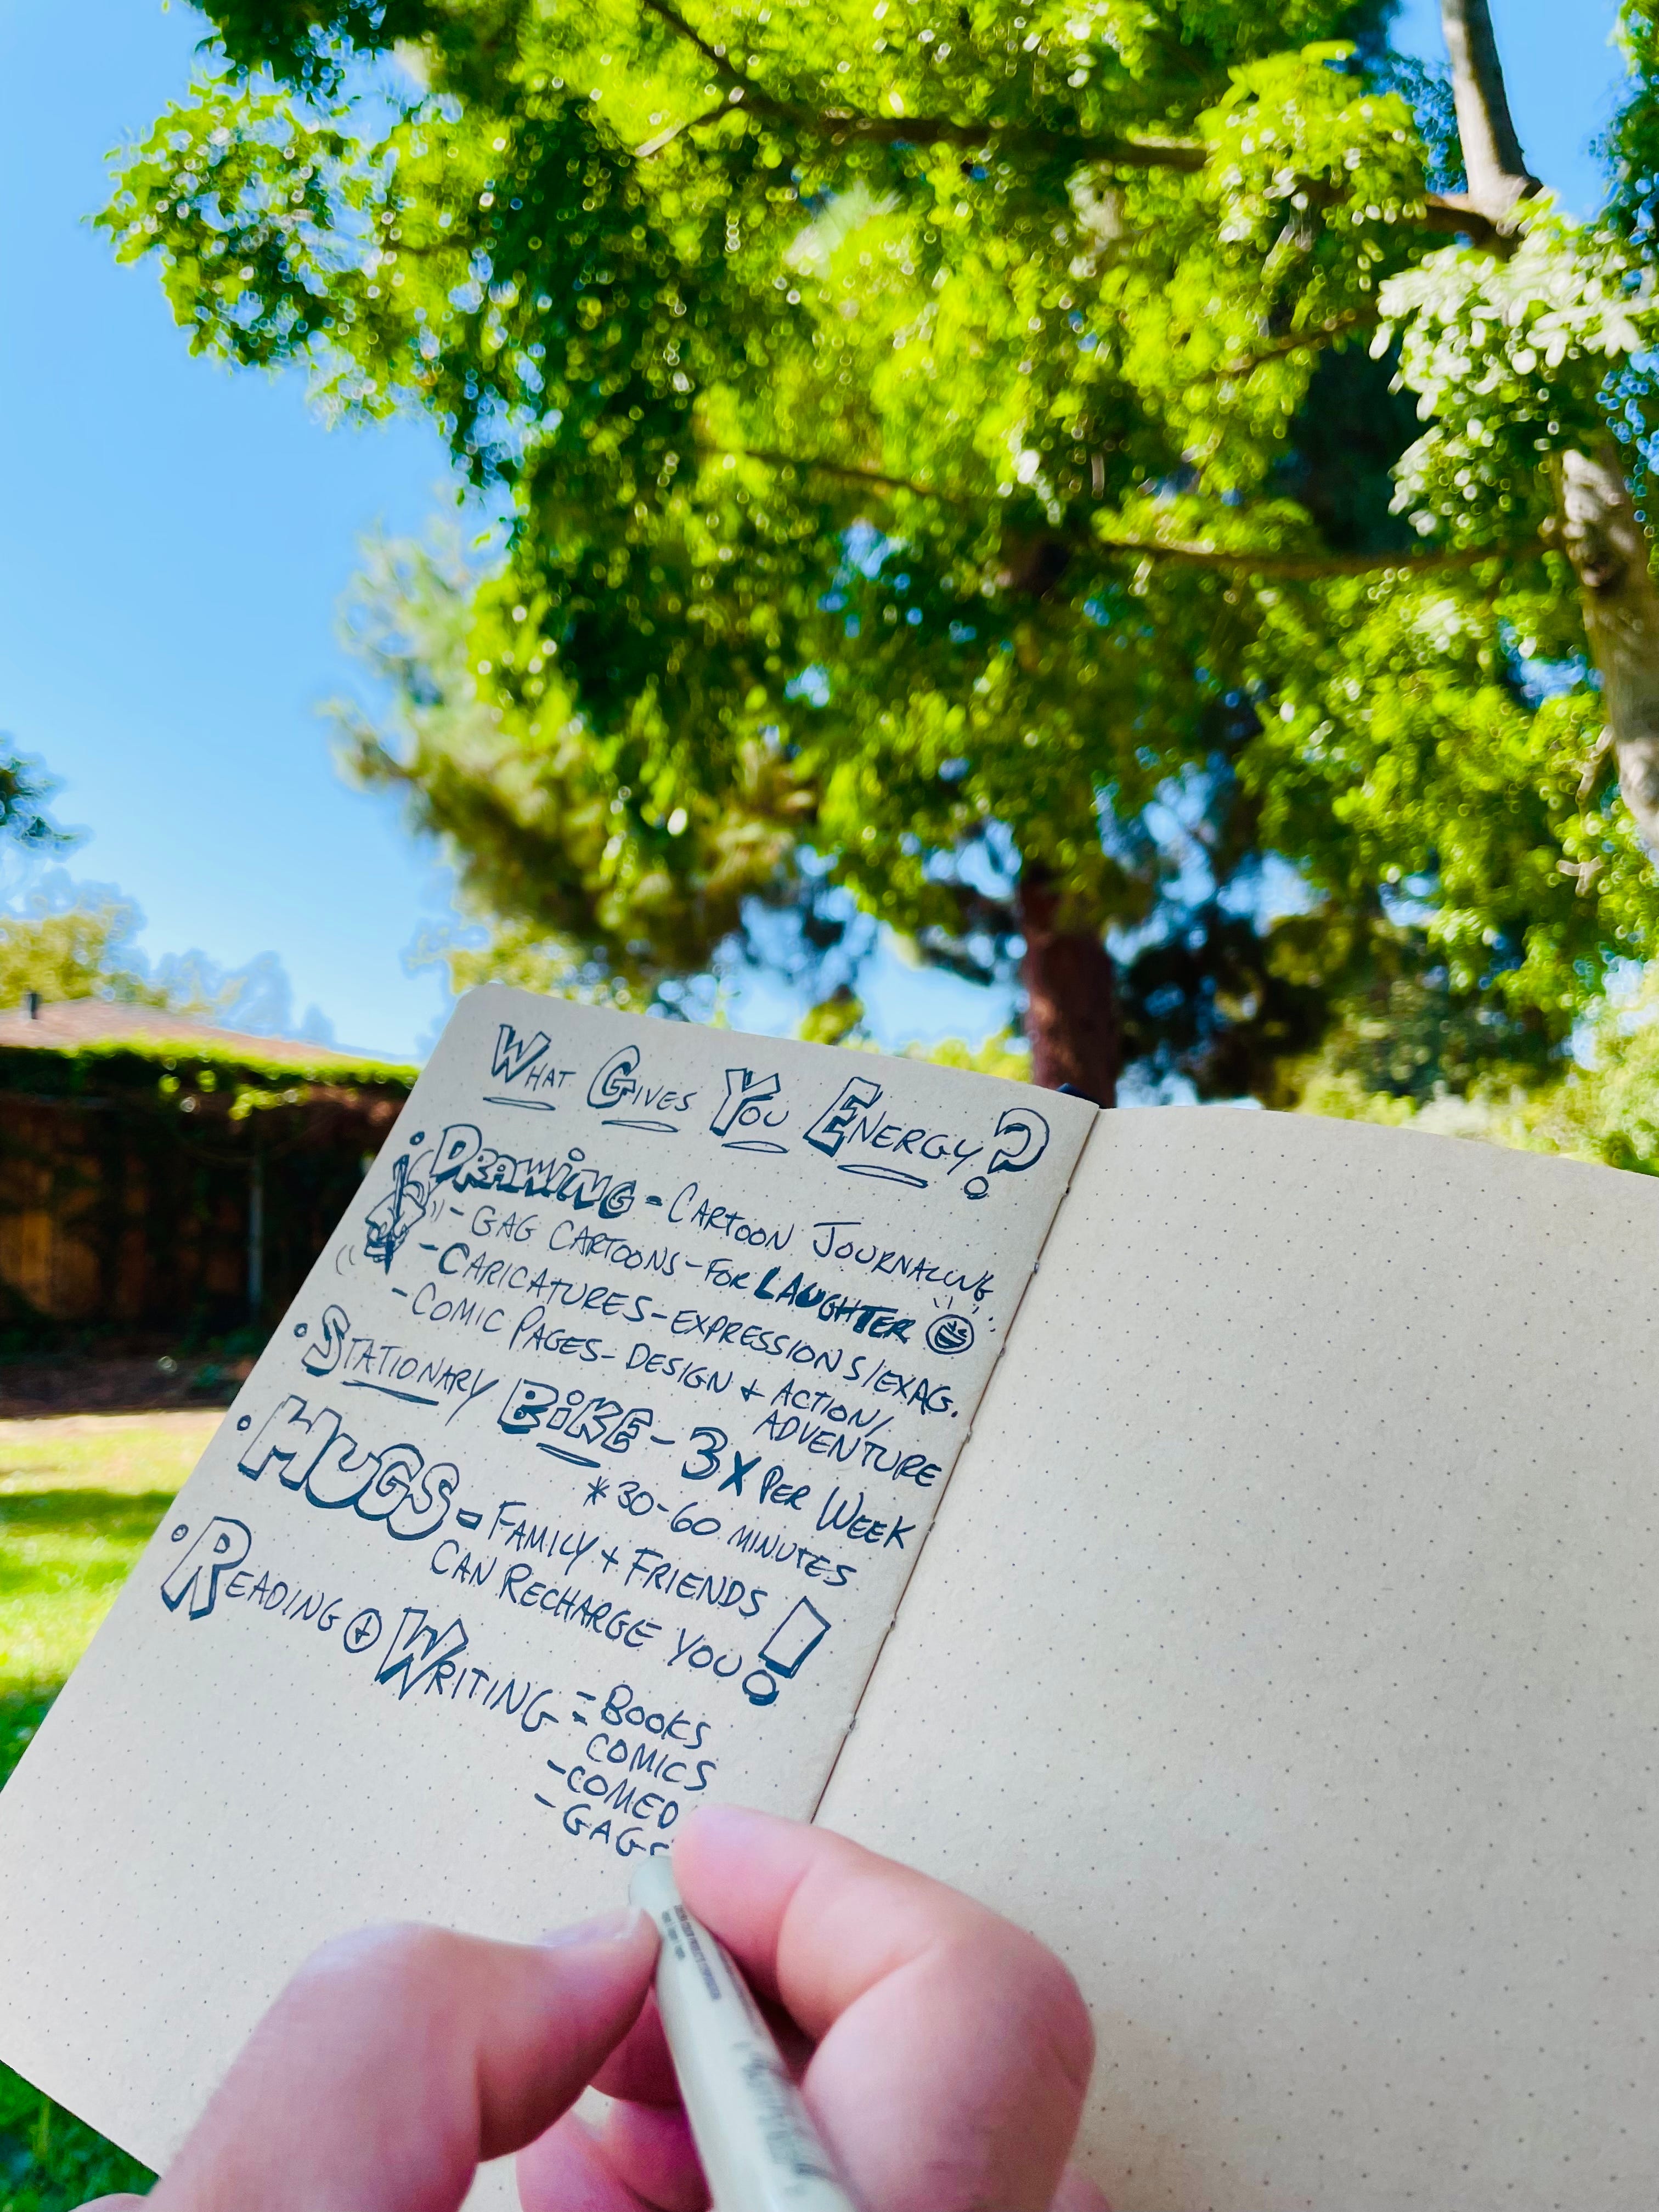 WHAT GIVES YOU ENERGY?
• DRAWING = CARTOON JOURNALING
- GAG CARTOONS - FOR LAUGHTER
- CARICATURES - EXPRESSIONS/EXAG.
- COMIC PAGES - DESIGN + ACTION/
ADVENTURE
• STATIONARY BIKE - 3X PER WEEK
* 30-60 MINUTES
• HUGS = FAMILY + FRIENDS
CAN RECHARGE YOU!
• READING + WRITING = BOOKS
- COMICS
- COMED
- GAGS